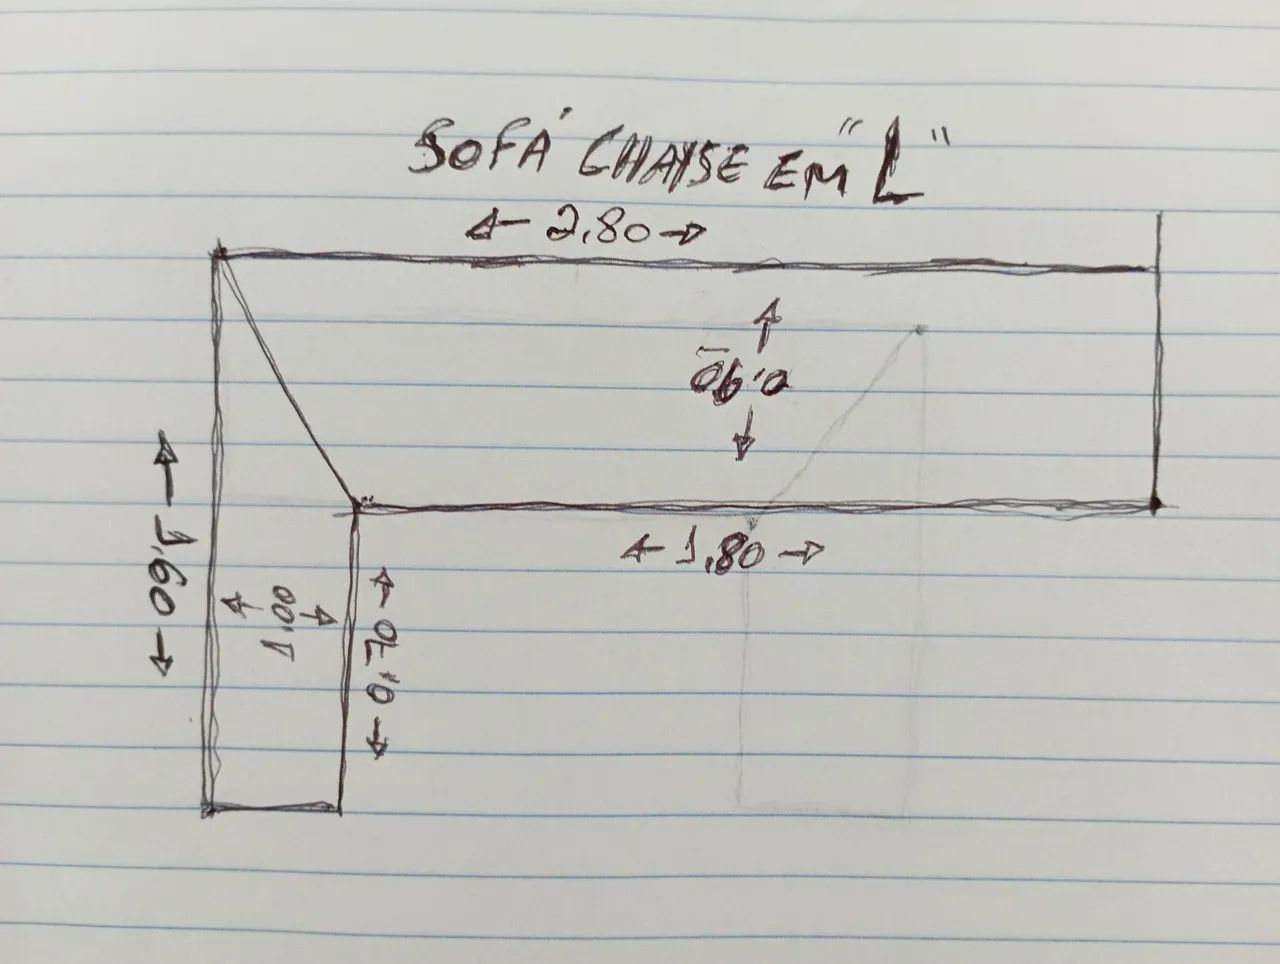 SOFÁ CHAISE EM "L"
2,80
0,90
1,80
1,60
1,00
0,70